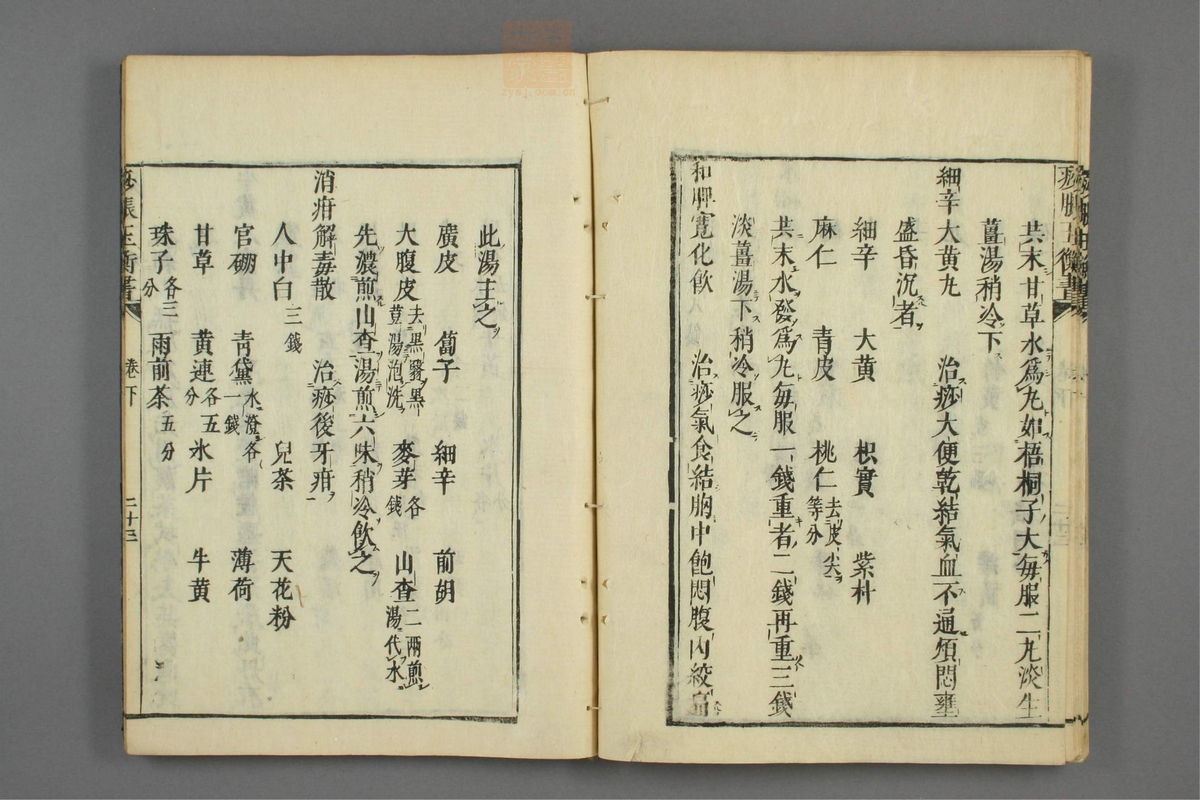 共末甘草水爲丸如梧桐子大毎服二丸淡生
薑湯稍冷下
細辛大黄丸　治痧大便乾結氣血不通煩悶壅
盛昏沉者
細辛　大黄　枳實　紫朴
麻仁　青皮　桃仁去皮尖等分
共末水發爲丸毎服一錢重者二錢再重三錢
淡薑湯下稍冷服之
和脾寬化飲　治痧氣食結胸中飽悶腹内絞
此湯主之
廣皮　蔔子　細辛　前胡
大腹皮去黑豆湯泡洗　麥芽各錢　山查二兩煎湯代水
先濃煎山查湯煎六味稍冷飲之
消疳解毒散　治痧後牙疳
人中白三錢　兒茶　天花粉
官硼　青黛水澄各一錢　薄荷
甘草　黄連各五分　氷片　牛黄
珠子各三分　雨前茶五分
痧脹玉衡書　卷下　二十三